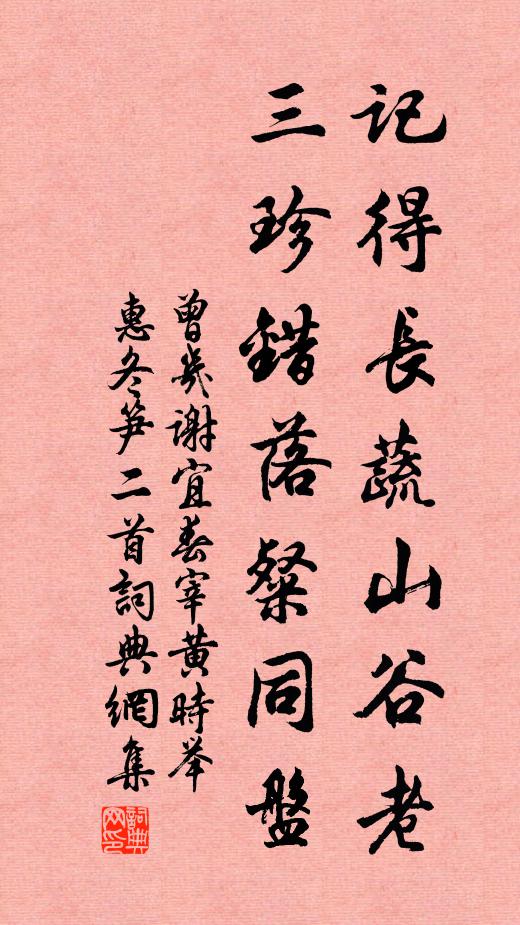 記得長蔬山谷老
三珍錯落粲同盤
曾幾謝宜春宰黄時举
惠冬笋二首詞典網集
詞典网印